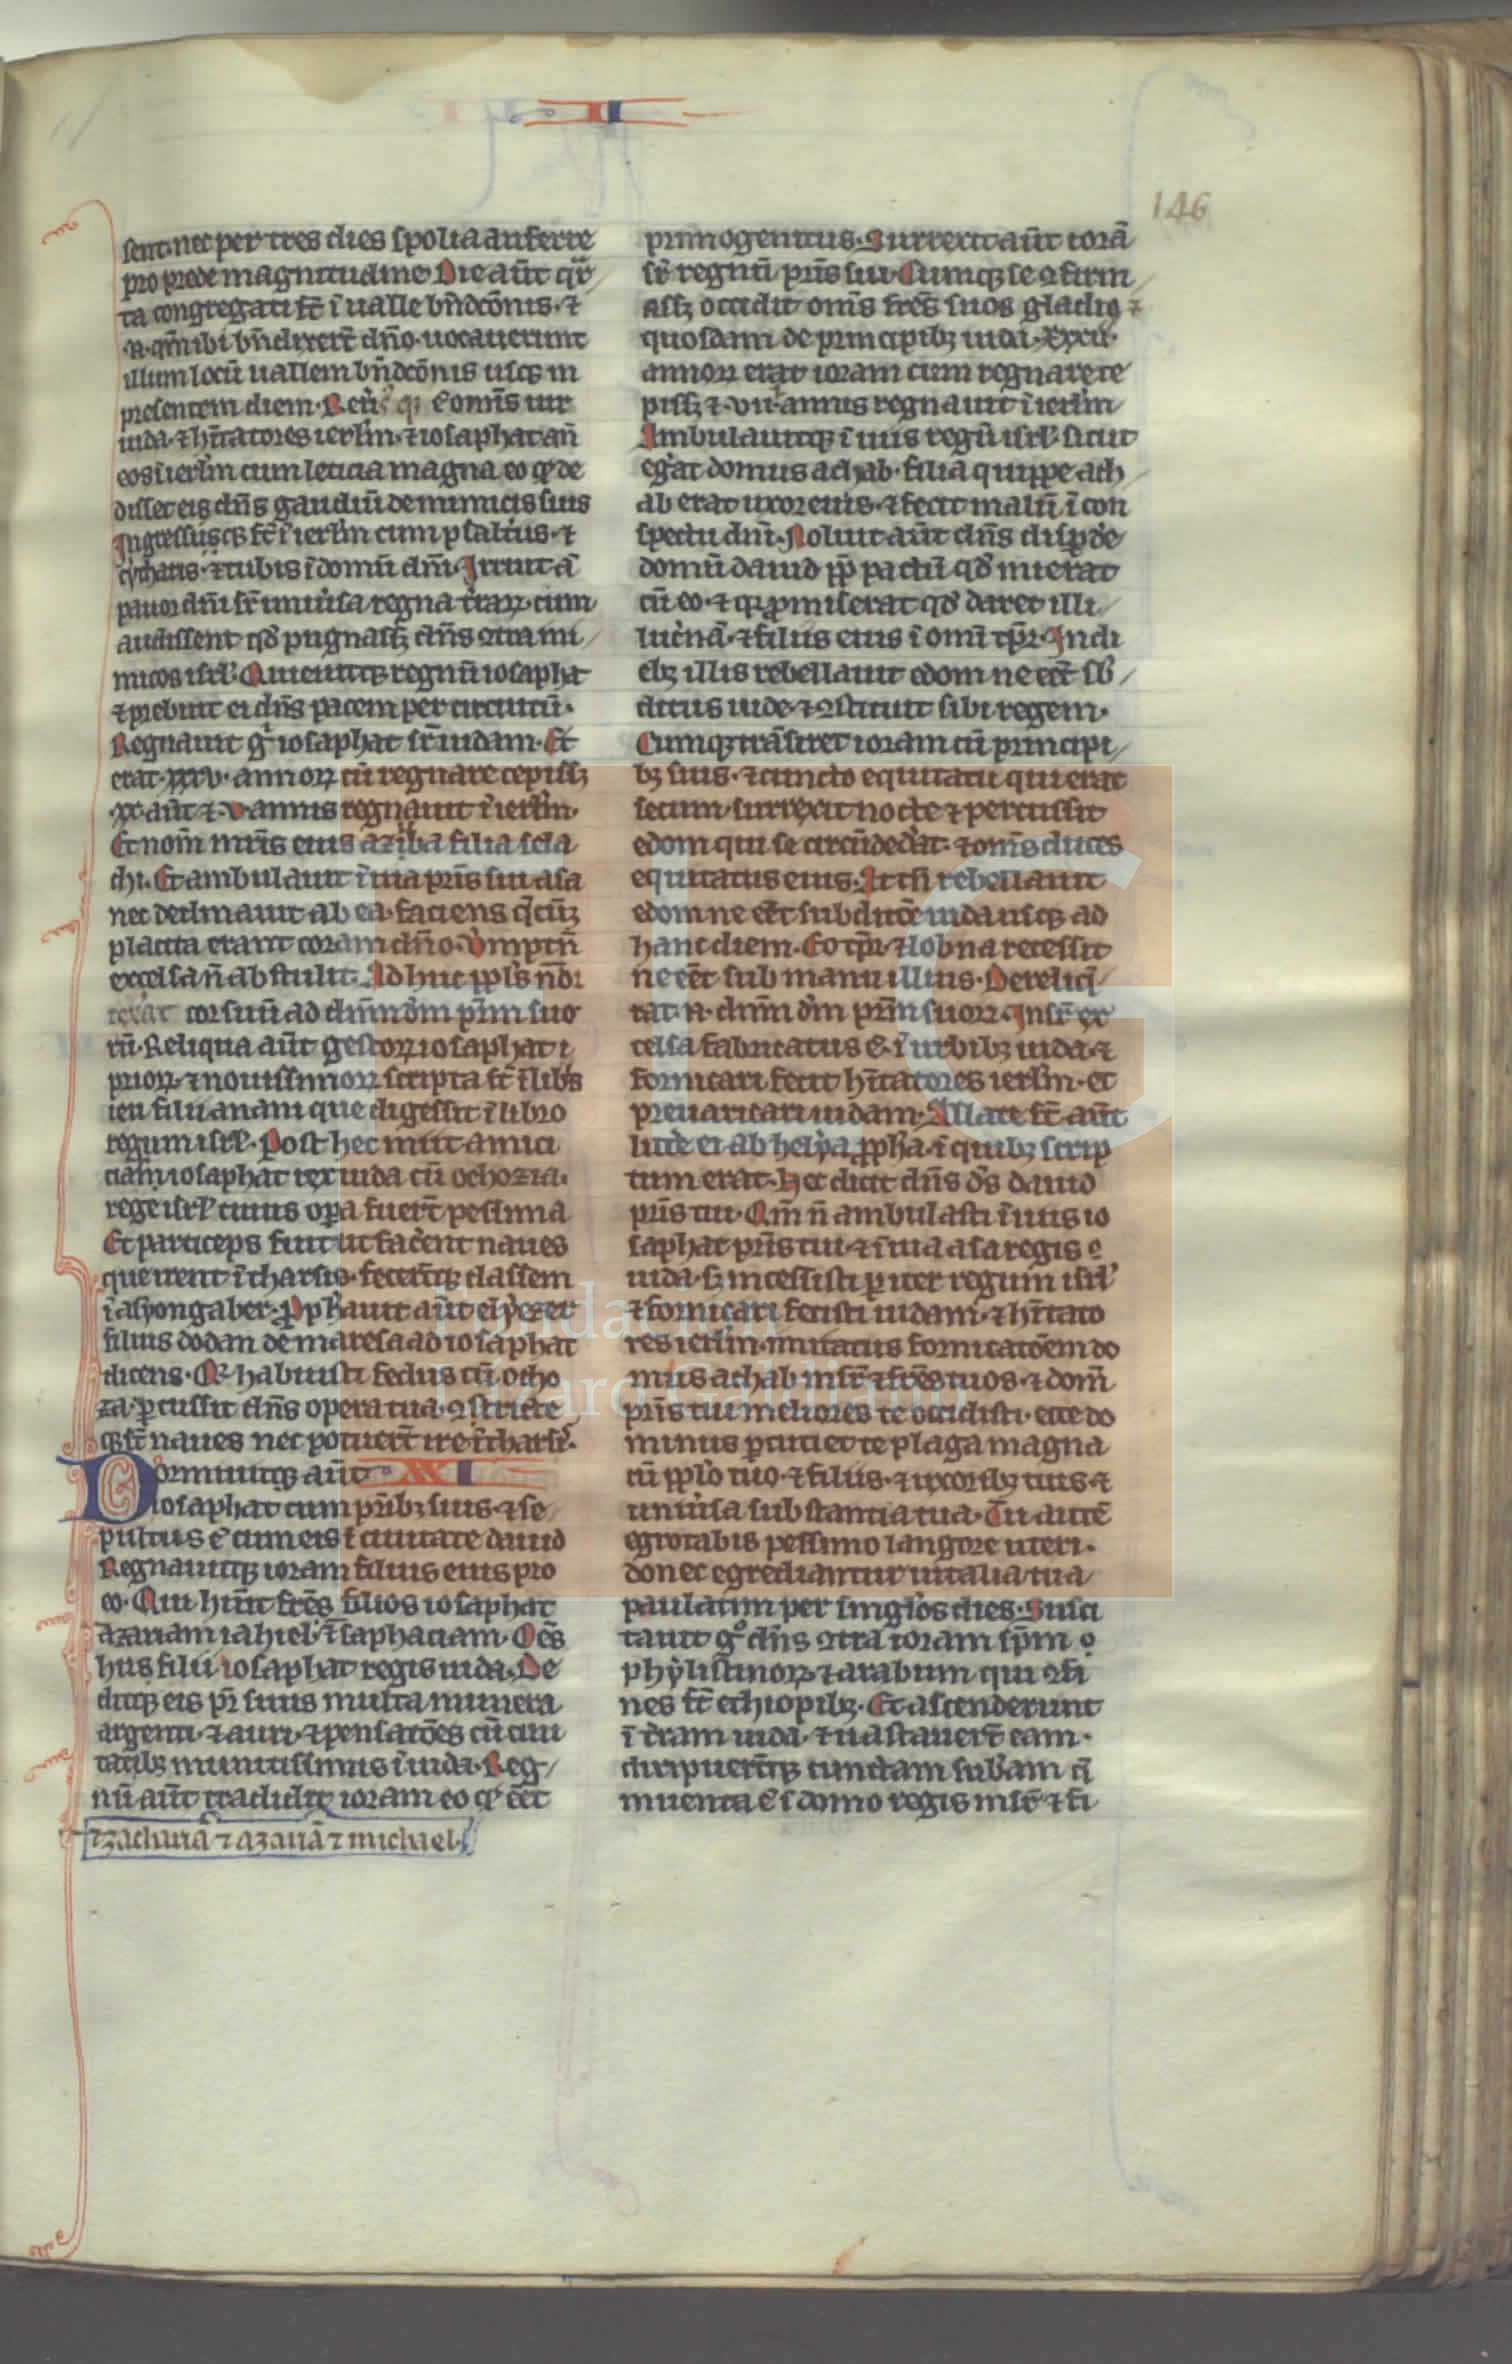 II
146
sent. nec per tres dies spolia auferre
pro prede magnitudine. Die aūt qr̄
ta congregati st̄ ī ualle bn̄dcōnis. ⁊
.n. qm̄ ibi bn̄dixert̄ dn̄o. uocauerunt
illum locū uallem bn̄dcōnis usqꝫ in
presentem diem. Reū ē omnis uir
iuda. ⁊ hītatores ierlm̄. ⁊ iosaphat an̄
eos ī ierlm̄ cum leticia magna eo qꝫ de
disset eis dn̄s gaudiū de inimicis suis
Ingressusqꝫ st̄ ī ierlm̄ cum psalt̄iis. ⁊
cytharis. ⁊ tubis ī domū dn̄i. Irruit ā
pauor dn̄i sr̄ uniūsa regna t̄raꝝ. cum
audissent qd̄ pugnassꝫ dn̄s ꝯtra ini
micos isrl̄. Quieuitqꝫ regnū iosaphat
⁊ prebuit ei dn̄s pacem per circuitū.
Regnauit gͥ iosaphat sr̄ iudam. Et
erat .xxxv. annoꝝ cū regnare cepissꝫ
.xx. aūt ⁊ .v. annis regnauit ī ierlm̄.
Et nom̄ mr̄is eius aziba filia sela
chi. Et ambulauit ī uia pr̄is sui asa
nec declinauit ab ea. faciens q̄cūꝫ
placita erant coram dn̄o. Vmptn̄
excelsa n̄ abstulit. Adhuc ppl̄s n̄ di
rexat cor suū ad dn̄m dm̄ prm̄ suo
rū. Reliqua aūt gestoꝝ iosaphat .
prioꝝ. ⁊ nouissimoꝝ scripta st̄ ī libs̄
ieu filii anani que digessit ī libro
regum isrl̄. Post hec iniit amici
ciam iosaphat rex iuda cū ochozia.
rege isrl̄ cuius opa fuert̄ pessima
Et particeps fuit ut facent naues
que irent ī tharsis. fecert̄qꝫ classem
ī asyongaber. Pph̄auit aūt elyezer
filius dodan de maresa ad iosaphat
dicens. Qꝛ habuisti fedus cū ocho
zia. ꝑcussit dn̄s opera tua. ꝯtrite
qꝫ st̄ naues nec potuert̄ ire ī thars̄.
Dormiuitqꝫ aūt XXI
iosaphat cum pr̄ibꝫ suis. ⁊ se
pultus ē cum eis ī ciuitate dauid
Regnauitqꝫ ioram filius eius pro
eo. Qui hūit fr̄es filios iosaphat
azariam iahiel. ⁊ saphaciam. Oēs
hii filii iosaphat regis iuda. De
ditqꝫ eis pr̄ suus multa munera
argenti. ⁊ auri. ⁊ pensatōes cū ciui
tatibꝫ munitissimis ī iuda. Reg
nū aūt tradidit ioram eo qꝫ eēt
⁊ zachariā ⁊ azariā ⁊ michael.
primogenitus. Surrexit aūt iorā
sr̄ regnū pr̄is sui. Cumqꝫ se ꝯfirm
assꝫ occidit oms̄ fr̄es suos gladio ⁊
quosdam de principibꝫ iuda. xxxii.
annoꝝ erat ioram cum regnare ce
pissꝫ ⁊ .viii. annis regnauit ī ierlm̄
Ambulauitqꝫ ī uiis regū isrl̄. sicut
egāt domus achab. filia quippe ach
ab erat uxor eius. ⁊ fecit malū ī con
spectu dn̄i. Noluit aūt dn̄s disꝑde
domū dauid pp̄ pactū qd̄ inierat
cū eo. ⁊ qꝛ ꝓmiserat qd̄ daret illi
lucnā. ⁊ filiis eius ī omi tp̄r. Indi
ebꝫ illis rebellauit edom ne eēt sb̄
ditus iude. ⁊ ꝯstituit sibi regem.
Cumqꝫ trāsiret ioram cū principi
bꝫ suis. ⁊ cuncto equitatu qui erat
secum. surrexit nocte ⁊ percussit
edom qui se circūdedat. ⁊ oms̄ duces
equitatus eius. At tn̄ rebellauit
edom ne eēt sub dicōe iuda usqꝫ ad
hanc diem. Eo tp̄r. ⁊ lobna recessit
ne eēt sub manu illius. Dereliq̄
rat .n. dn̄m dm̄ prm̄ suoꝝ. Insr̄ ex
celsa fabricatus ē. ī urbibꝫ iuda. ⁊
fornicari fecit hītatores ierlm̄. et
preuaricari iudam. Allate st̄ aūt
litt̄e ei ab helya ꝓph̄a. ī quibꝫ scrip
tum erat. Hec dicit dn̄s ds̄ dauid
pr̄is tui. Qm̄ n̄ ambulasti ī uiis io
saphat pr̄is tui. ⁊ ī uia asa regis
iuda. sꝫ incessisti ꝑ iter regum isrl̄
⁊ fornicari fecisti iudam. ⁊ hītato
res ierlm̄. imitatus fornicatōem do
mus achab insr̄ ⁊ fr̄es tuos. ⁊ dom̄
pr̄is tui meliores te occidisti. ecce do
minus ꝑcutiet te plaga magna
cū ppl̄o tuo. ⁊ filiis. ⁊ uxoribꝫ tuis. ⁊
uniūsa substantia tua. Tu autē
egrotabis pessimo langore uteri.
donec egrediantur uitalia tua
paulatim per singl̄os dies. Susci
tauit gͦ dn̄s ꝯtra ioram spm̄
phylistinoꝝ. ⁊ arabum qui ꝯfi
nes st̄ ethiopibꝫ. Et ascenderunt
ī t̄ram iuda. ⁊ uastauert̄ eam.
diripuert̄qꝫ cunctam subam q̄
inuenta ē ī domo regis insr̄ ⁊ fi
Fundación
Lázaro Galdiano